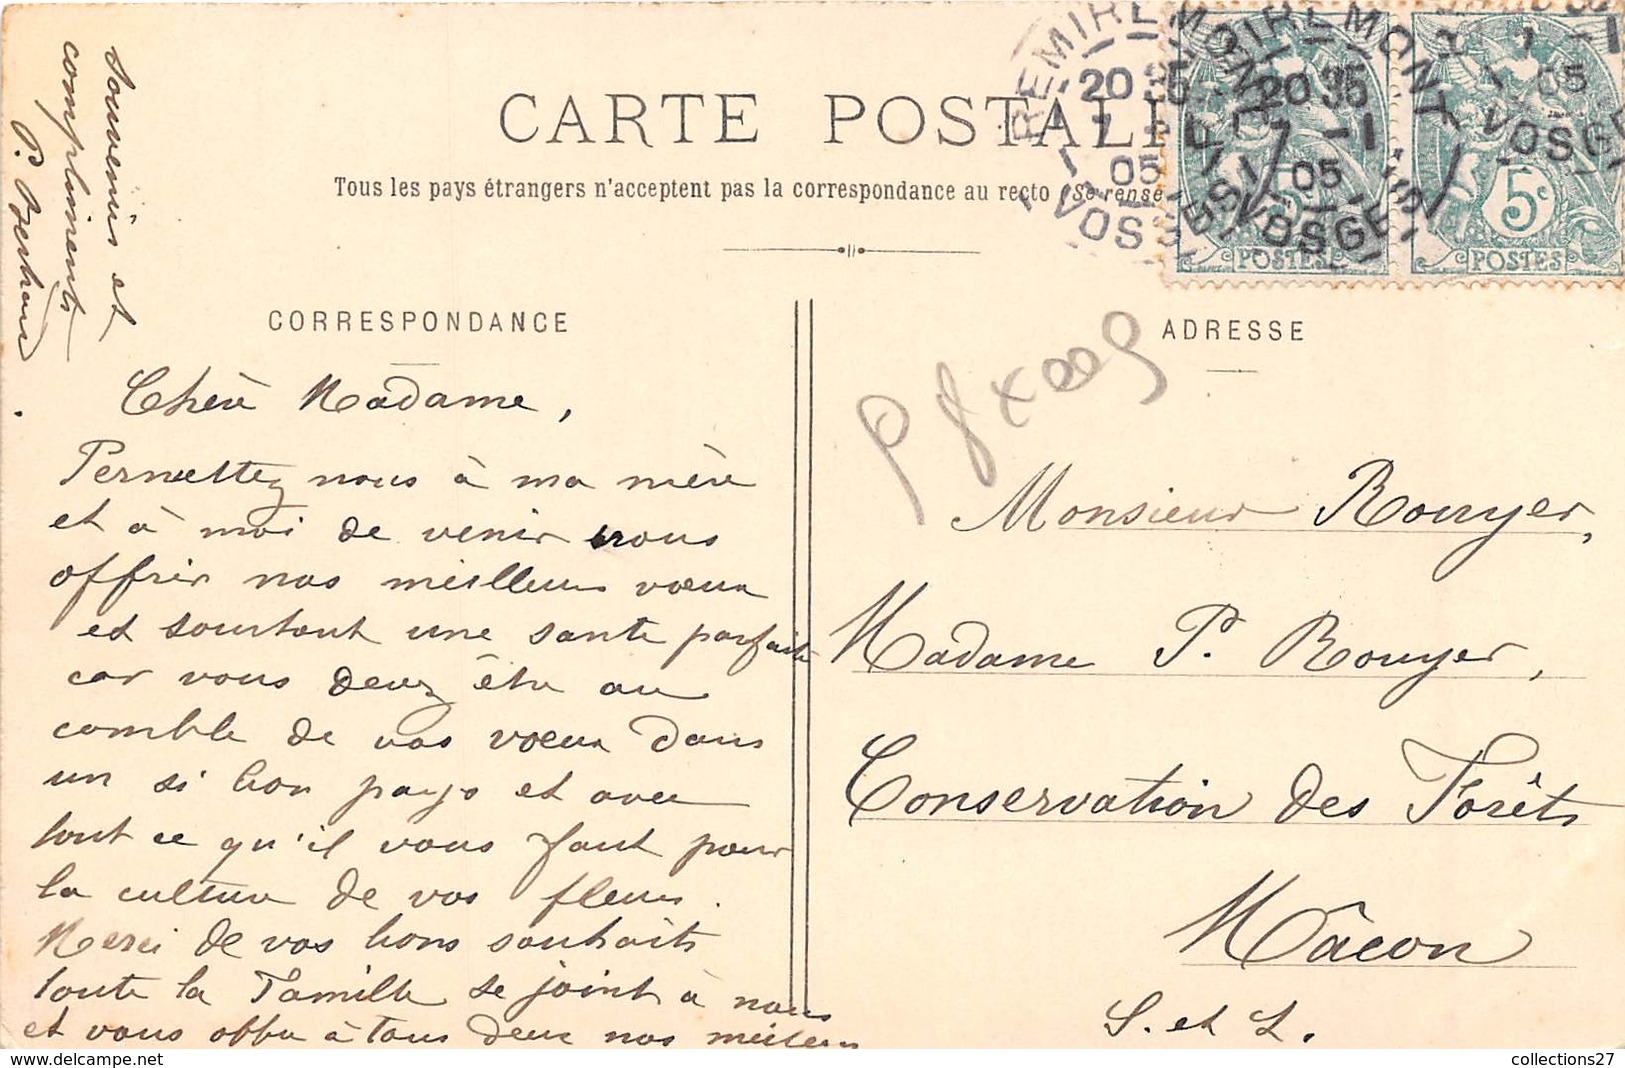 CARTE POSTALE
Tous les pays étrangers n'acceptent pas la correspondance au recto (Se rense
REMIREMONT
20 35
7 -1
05
VOSGES
REMIREMONT
20 35
7 -1
05
VOSGES
7 -1
05
VOSGES
5c
POSTES
POSTES
Souvenirs et
compliments
P. Bertrand
CORRESPONDANCE
ADRESSE
Chère Madame,
Permettez nous à ma mère
et à moi de venir vous
offrir nos meilleurs vœux
et surtout une santé parfaite
car vous devez être au
comble de vos vœux dans
un si bon pays et avec
tout ce qu'il vous faut pour
la culture de vos fleurs.
Merci de vos bons souhaits
toute la Famille se joint à nous
et vous offre à tous deux nos meilleurs
Monsieur Rouyer,
Madame P. Rouyer,
Conservation des Forêts
Mâcon
S. et L.
collections27